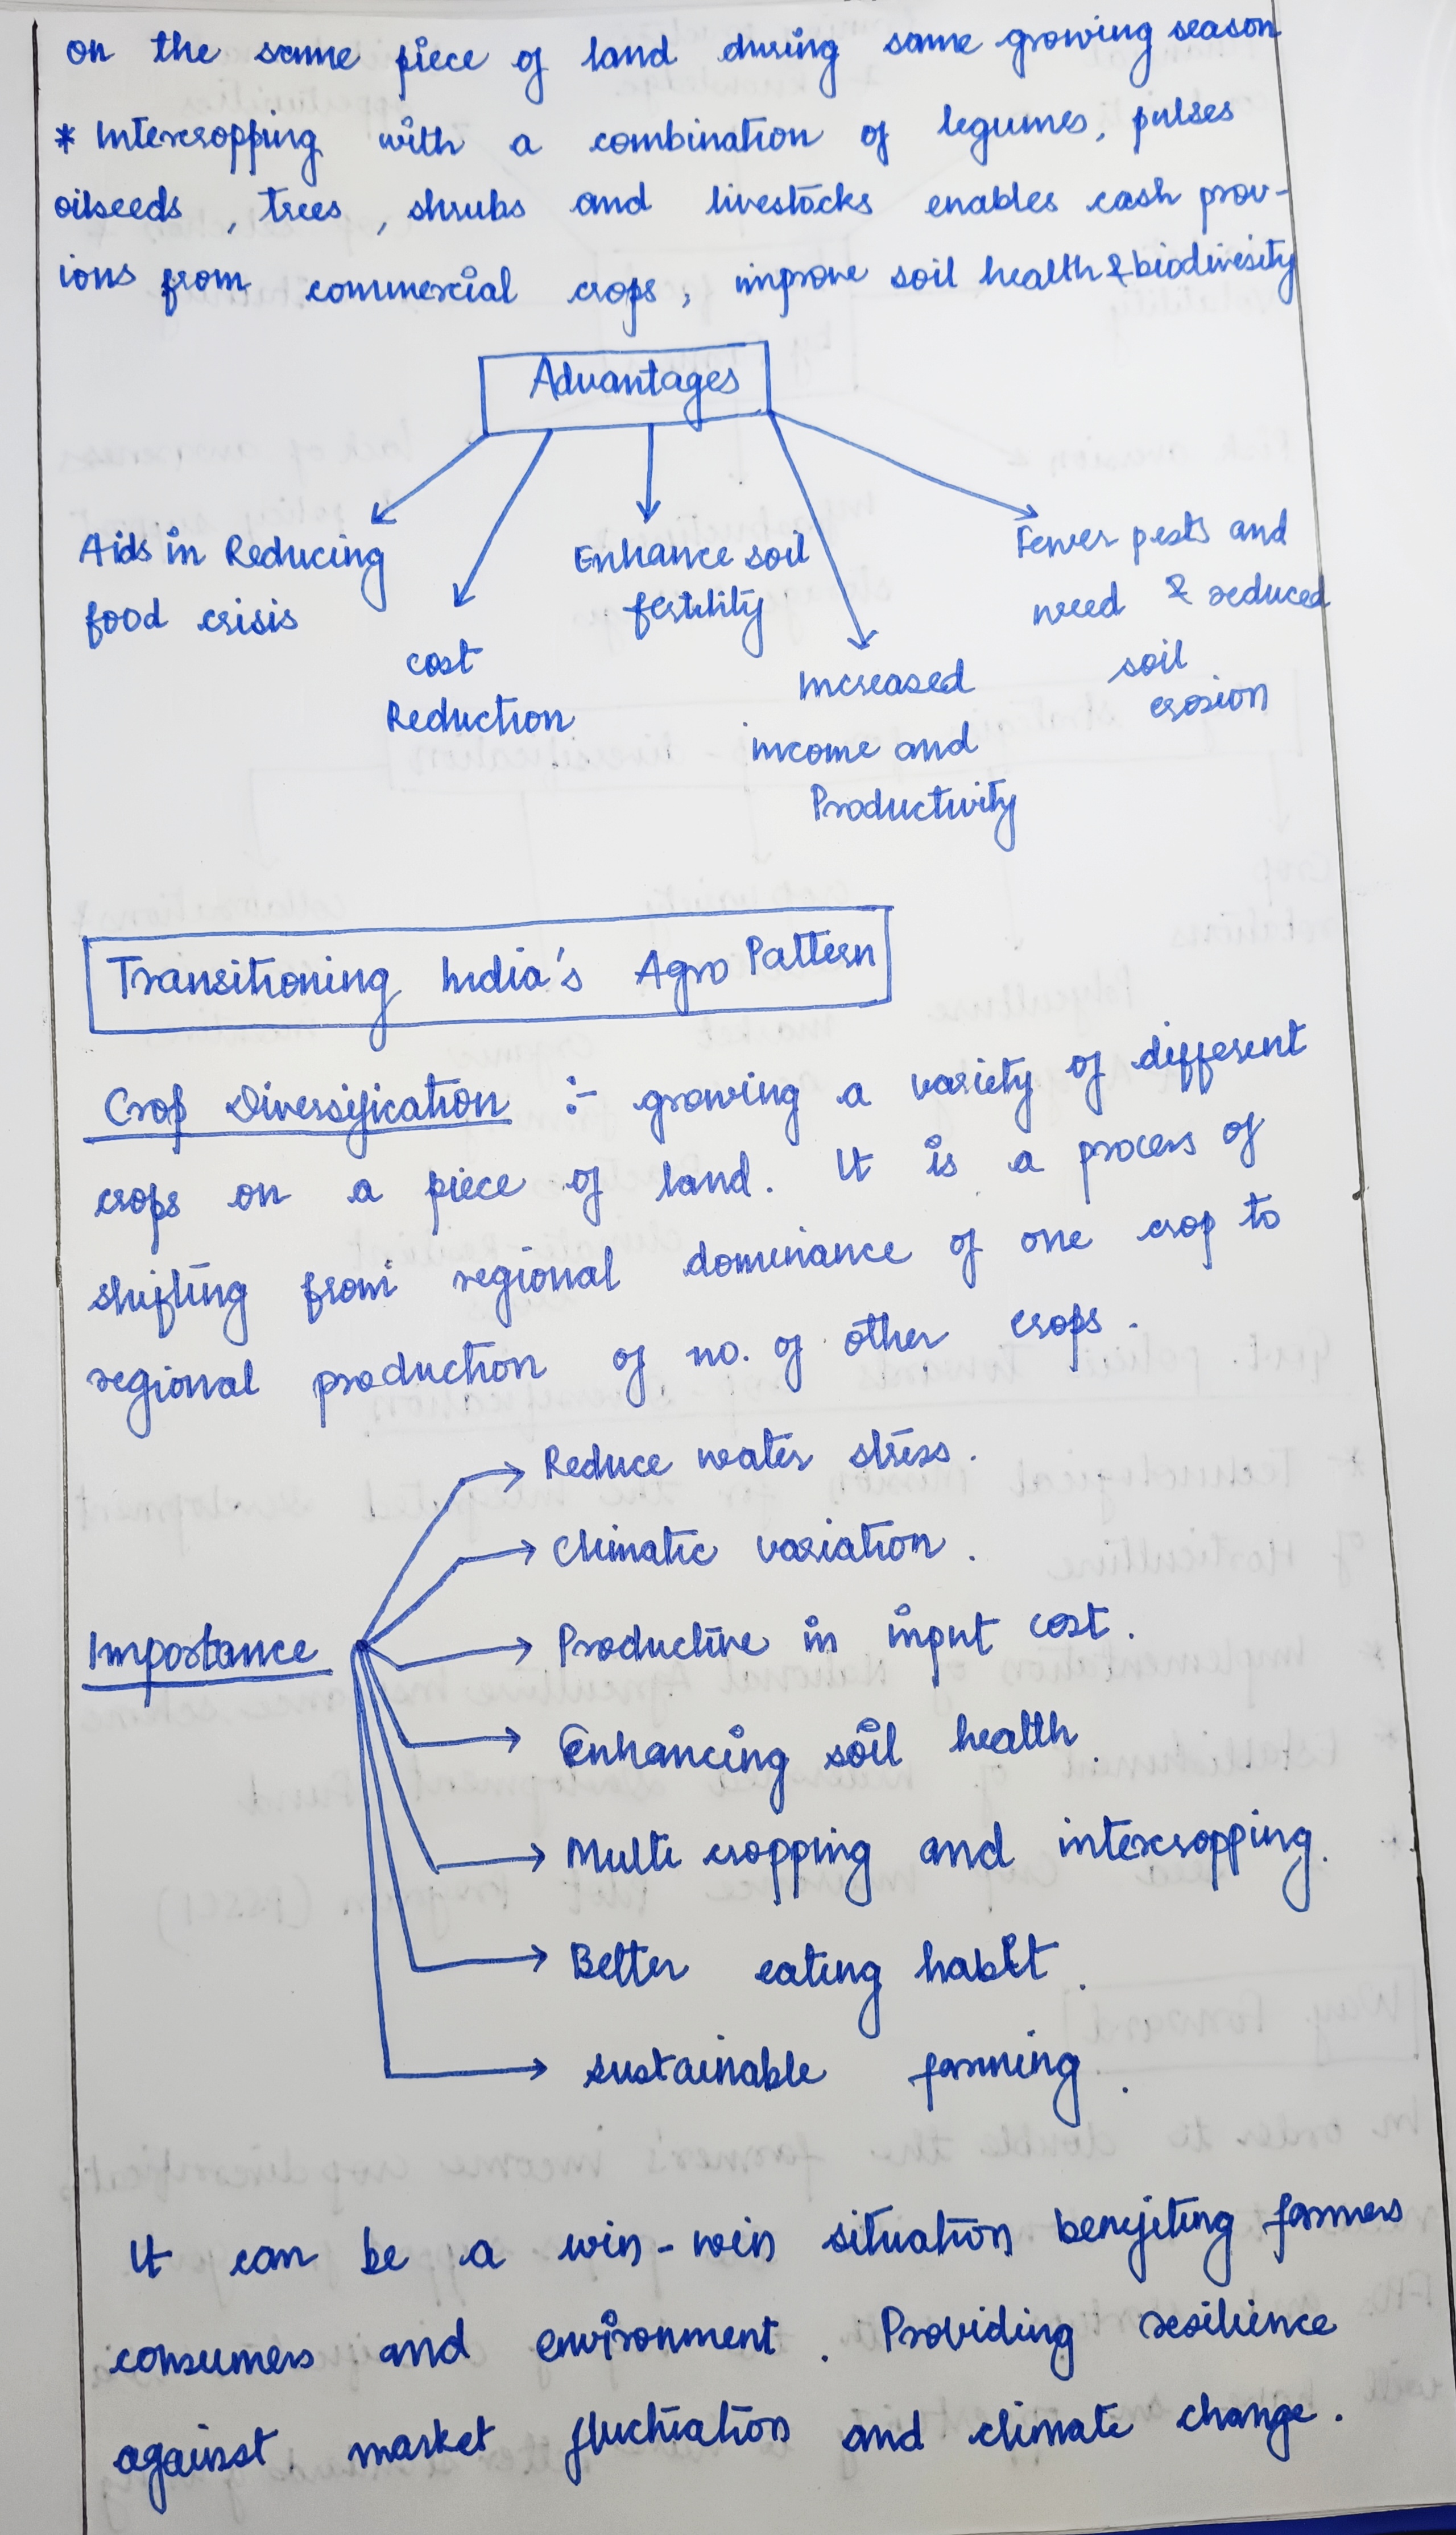 on the same piece of land during same growing season
* Intercropping with a combination of legumes, pulses
oilseeds, trees, shrubs and livestocks enables cash prov-
ions from commercial crops, improve soil health & biodiversity
Advantages
Aids in Reducing
food crisis
cost
Reduction
Enhance soil
fertility
Increased
income and
Productivity
Fewer pests and
need & reduced
soil
erosion
Transitioning India's Agro Pattern
Crop Diversification :- growing a variety of different
crops on a piece of land. It is a process of
shifting from regional dominance of one crop to
regional production of no. of other crops.
Importance
Reduce water stress.
Climatic variation.
Productive in input cost.
Enhancing soil health.
Multi cropping and intercropping.
Better eating habit.
sustainable farming.
It can be a win-win situation benefiting farmers
consumers and environment. Providing resilience
against market fluctuation and climate change.